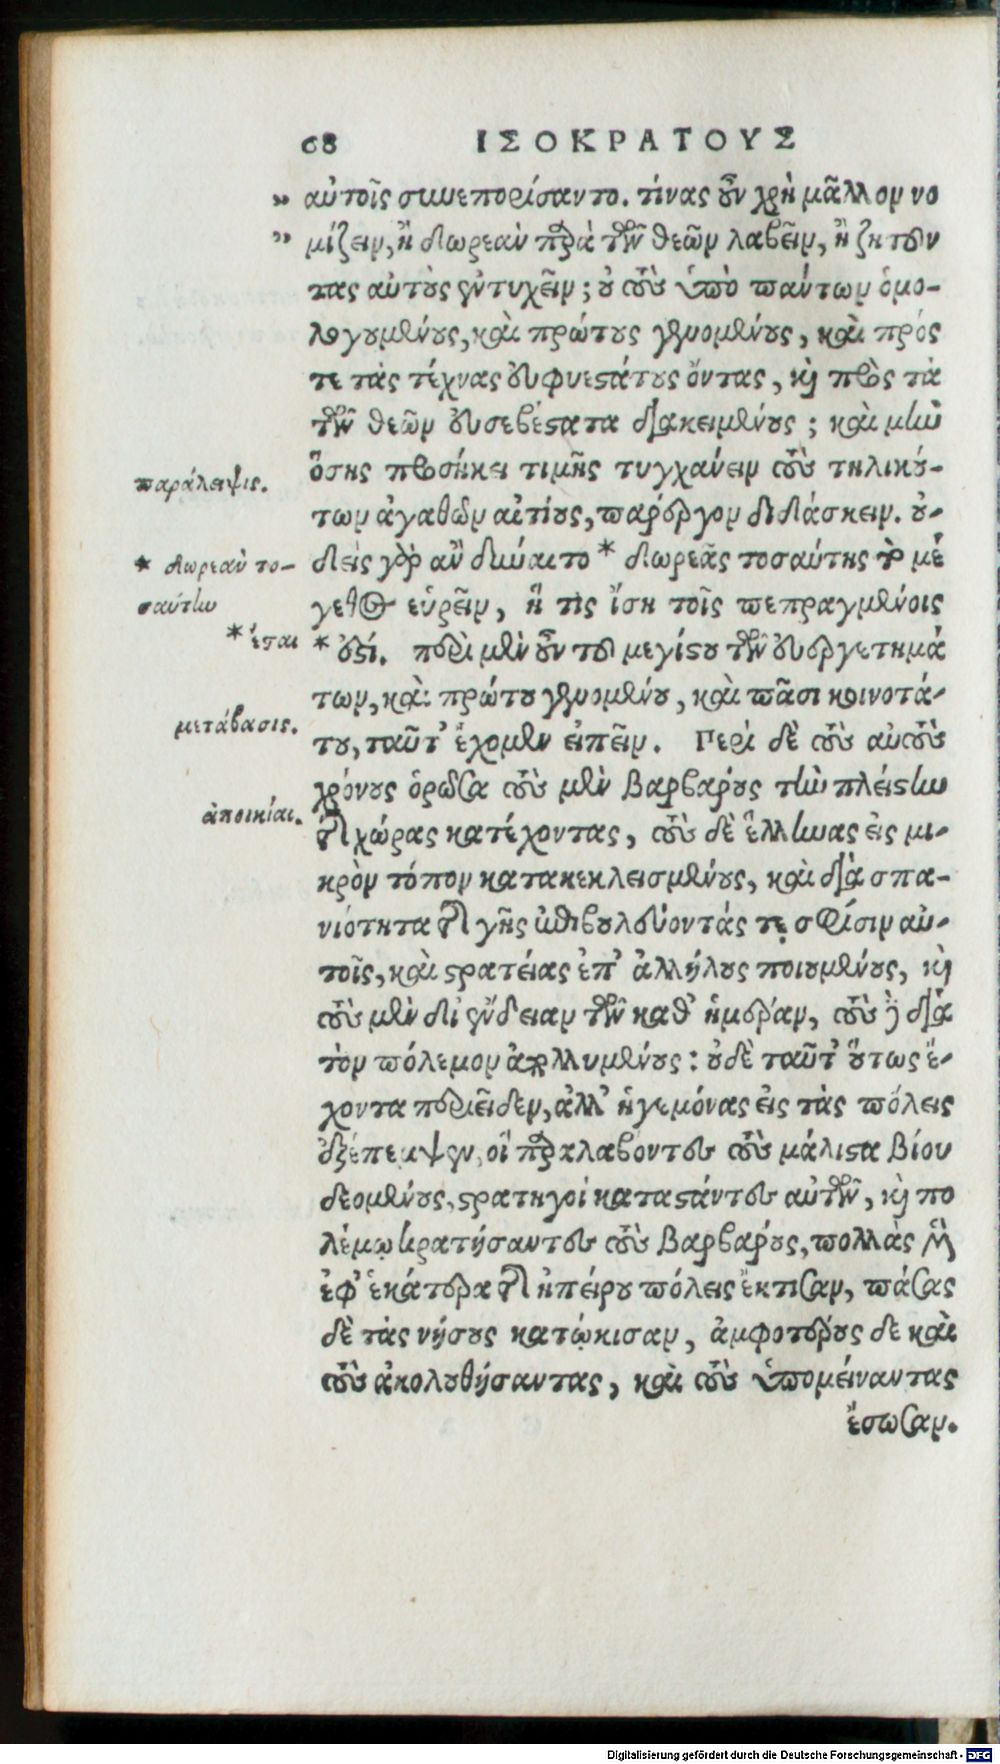 68 ΙΣΟΚΡΑΤΟΥΣ
„ αὐτοῖς συνεπορίσαντο. τίνας οὖν χρὴ μᾶλλον νο
„ μίζειν, ἢ δωρεὰν παρὰ τῶν θεῶν λαβεῖν, ἢ ζητοῦν
τας αὐτοὺς ἐντυχεῖν; οὐ τοὺς ὑπὸ πάντων ὁμο-
λογουμένους, καὶ πρώτους γενομένους, καὶ πρός
τε τὰς τέχνας εὐφυεστάτους ὄντας, καὶ πρὸς τὰ
τῶν θεῶν εὐσεβέστατα διακειμένους; καὶ μὴν
παράλειψις.
ὅσης προσήκει τιμῆς τυγχάνειν τοὺς τηλικού-
των ἀγαθῶν αἰτίους, πάρεργον διδάσκειν. οὐ-
* δωρεὰν το-
δεὶς γὰρ ἂν δύναιτο * δωρεᾶς τοσαύτης τὸ μέ
σαύτην
γεθος εὑρεῖν, ἥ τις ἴση τοῖς πεπραγμένοις
* ἔσται
* ἐστί. περὶ μὲν οὖν τοῦ μεγίστου τῶν εὐεργετημά
των, καὶ πρώτου γενομένου, καὶ πᾶσι κοινοτά-
μετάβασις.
του, ταῦτ' ἔχομεν εἰπεῖν. Περὶ δὲ τοὺς αὐτοὺς
χρόνους ὁρῶσα τοὺς μὲν βαρβάρους τὴν πλείστην
ἀποικίαι.
τῆς χώρας κατέχοντας, τοὺς δὲ ἕλληνας εἰς μι-
κρὸν τόπον κατακεκλεισμένους, καὶ διὰ σπα-
νιότητα τῆς γῆς ἐπιβουλεύοντάς τε σφίσιν αὐ-
τοῖς, καὶ στρατείας ἐπ' ἀλλήλους ποιουμένους, καὶ
τοὺς μὲν δι' ἔνδειαν τῶν καθ' ἡμέραν, τοὺς δὲ διὰ
τὸν πόλεμον ἀπολλυμένους: οὐδὲ ταῦτ' οὕτως ἔ-
χοντα περιεῖδεν, ἀλλ' ἡγεμόνας εἰς τὰς πόλεις
ἐξέπεμψεν, οἳ παραλαβόντες τοὺς μάλιστα βίου
δεομένους, στρατηγοὶ καταστάντες αὐτῶν, καὶ πο
λέμῳ κρατήσαντες τοὺς βαρβάρους, πολλὰς μὲν
ἐφ' ἑκάτερα τῆς ἠπείρου πόλεις ἔκτισαν, πάσας
δὲ τὰς νήσους κατῴκισαν, ἀμφοτέρους δὲ καὶ
τοὺς ἀκολουθήσαντας, καὶ τοὺς ὑπομείναντας
ἔσωσαν.
Digitalisierung gefördert durch die Deutsche Forschungsgemeinschaft - DFG